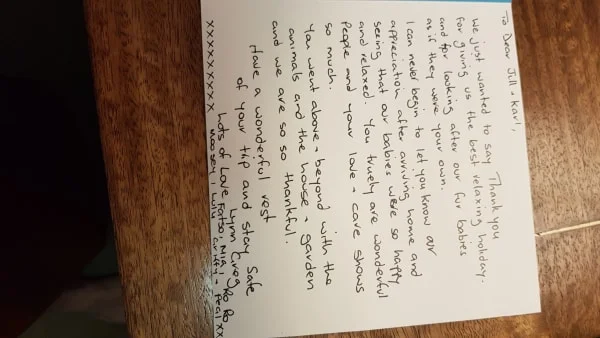 To Dear Jill + Karl,
We just wanted to say Thank you
for giving us the best relaxing holiday.
and for looking after our fur babies
as if they were your own.
I can never begin to let you know our
appreciation after arriving home and
seeing that our babies were so happy
and relaxed. You truely are wonderful
people and your love + care shows
so much.
You went above + beyond with the
animals and the house + garden
and we are so so thankful.
Have a wonderful rest
of your trip and stay safe
Lynn Greg
Lots of Love Fatso, Mia, Ro Ro
xxxxxxxxxx Moosey, Lulu